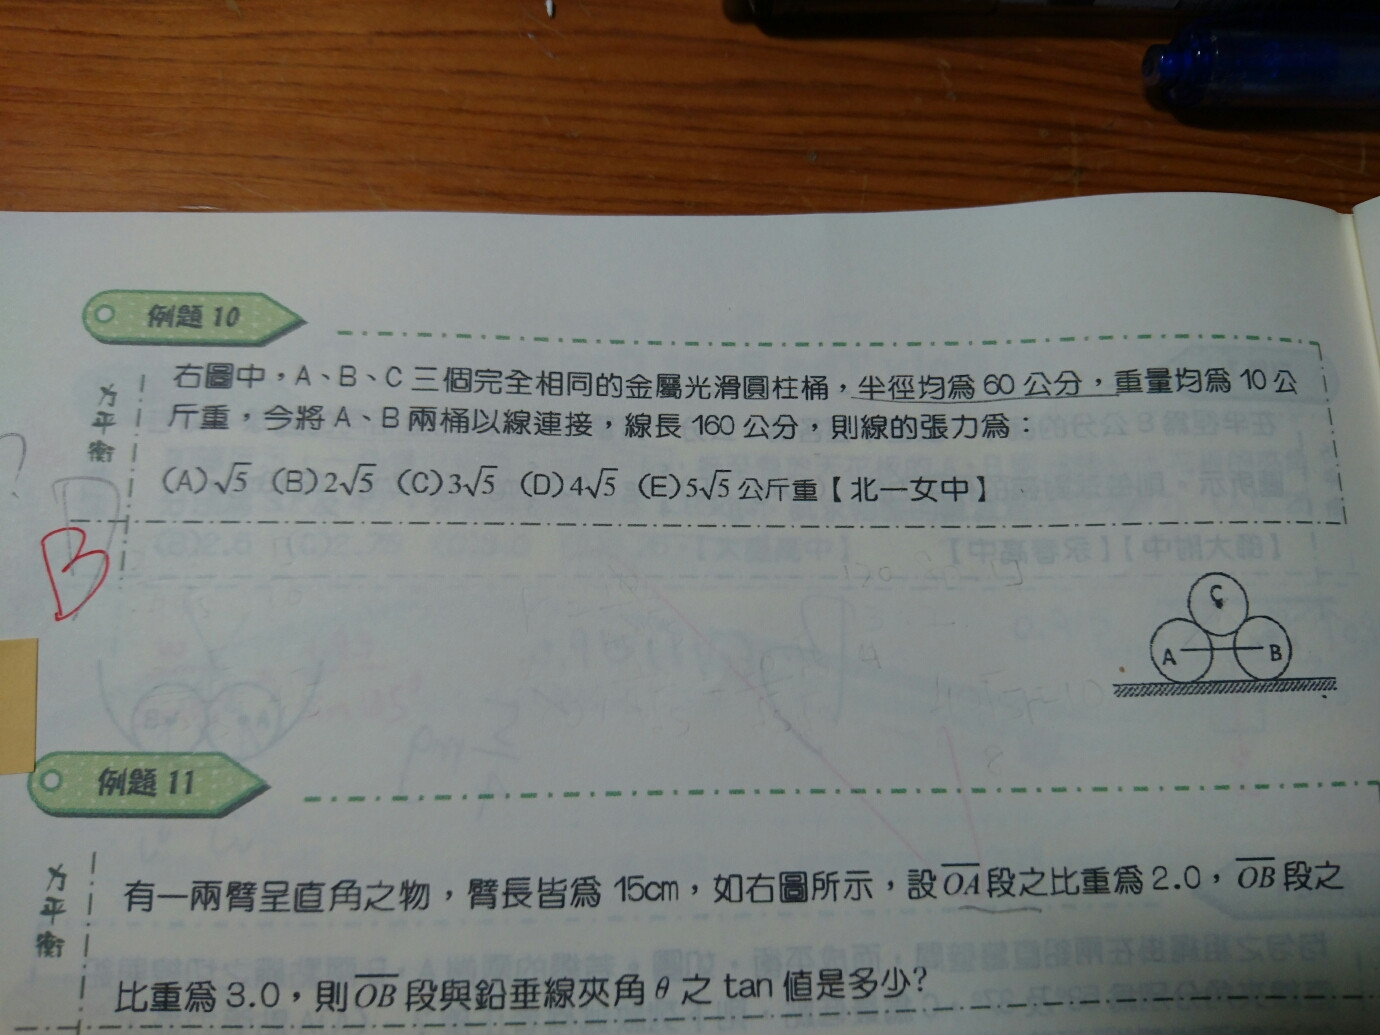 例題 10
力平衡
右圖中，A、B、C 三個完全相同的金屬光滑圓柱桶，半徑均為 60 公分，重量均為 10 公
斤重，今將 A、B 兩桶以線連接，線長 160 公分，則線的張力為：
(A)√5 (B)2√5 (C)3√5 (D)4√5 (E)5√5 公斤重【北一女中】
B
C
A B
例題 11
力平衡
有一兩臂呈直角之物，臂長皆為 15cm，如右圖所示，設 O̅A̅ 段之比重為 2.0，O̅B̅ 段之
比重為 3.0，則 O̅B̅ 段與鉛垂線夾角 θ 之 tan 值是多少？